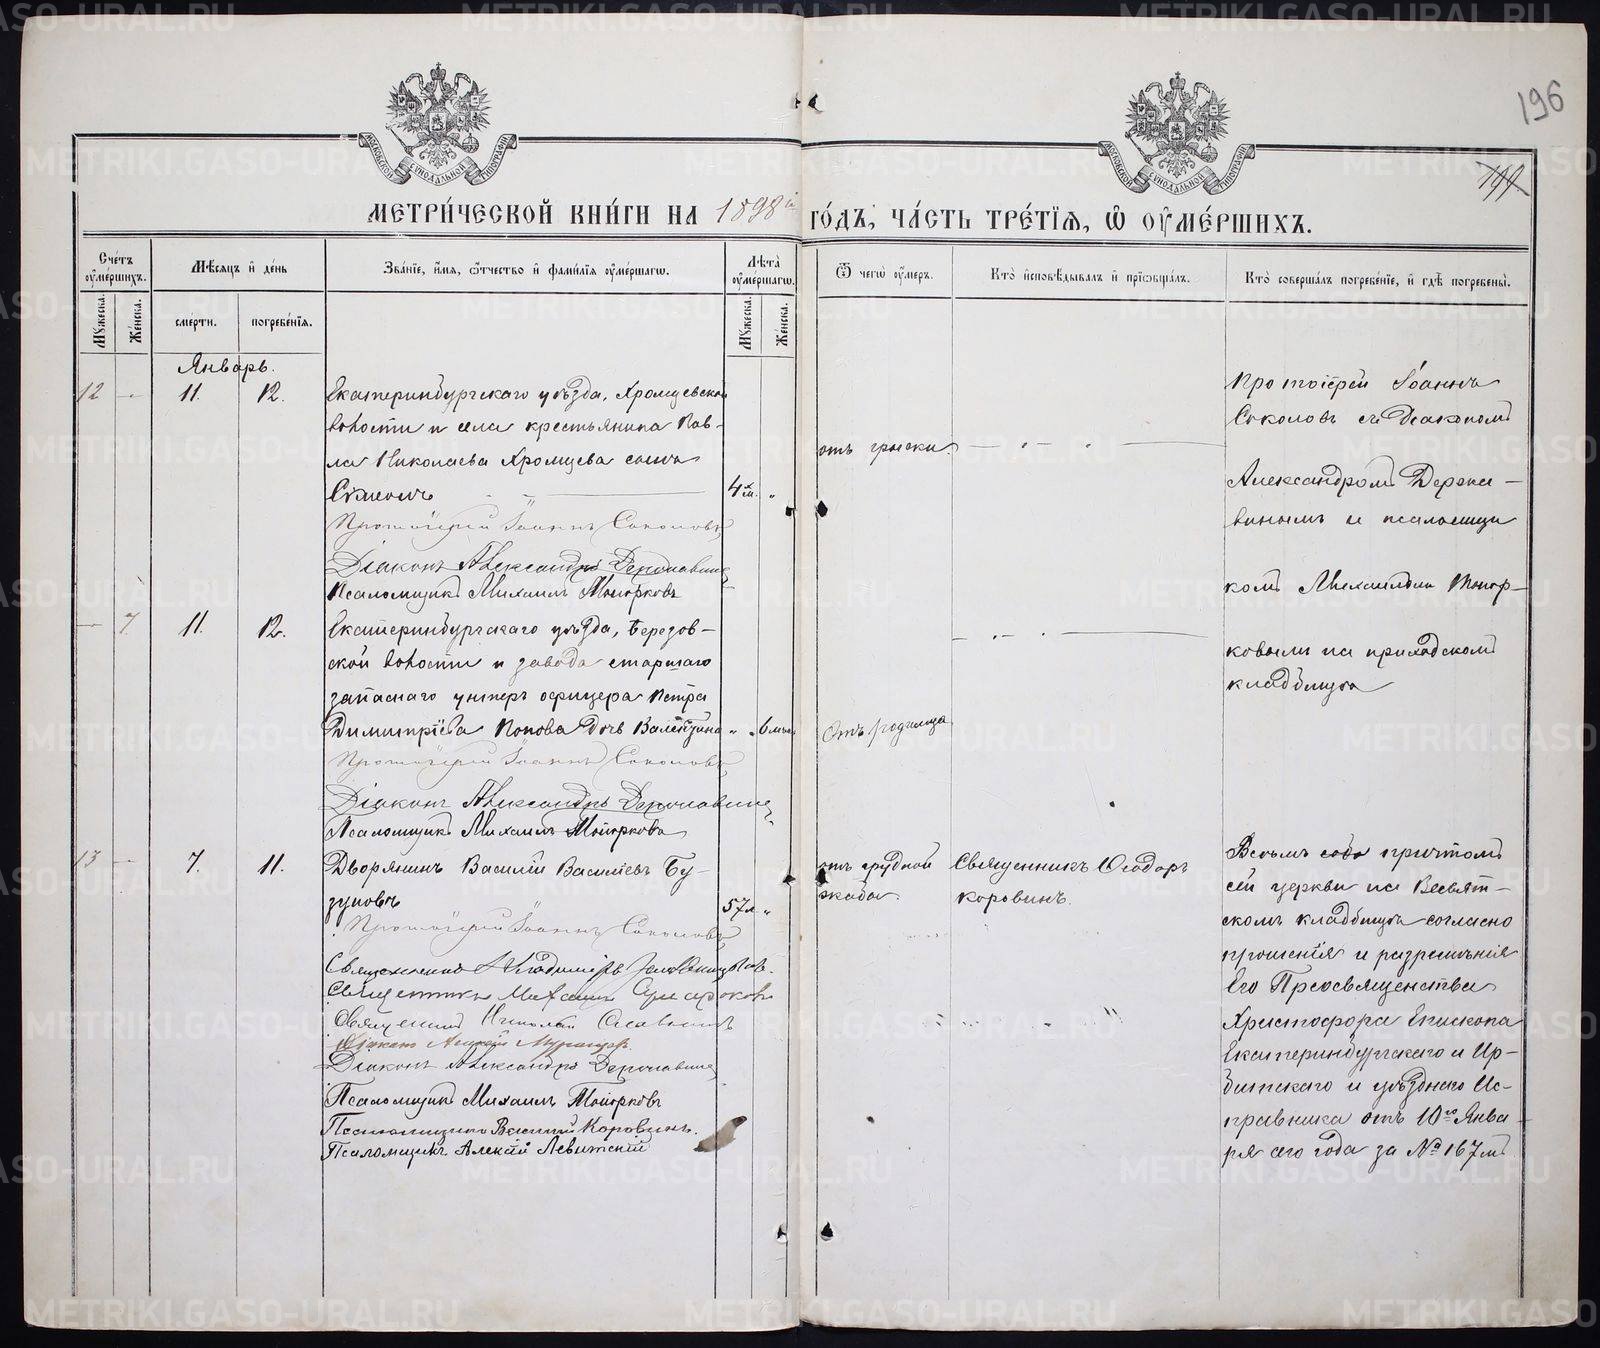 196
МЕТРИ́ЧЕСКОЙ КНИ́ГИ НА 1898й ГО́ДЪ, ЧА́СТЬ ТРЕ́ТІЯ, Ѡ ОУМЕ́РШИХЪ.
Сче́тъ оуме́ршихъ.
Мужеска.
Же́нска.
Мѣ́сяцъ и де́нь
сме́рти.
погребе́нія.
Зва́ніе, и́мя, о́тчество и фами́лія оуме́ршагѡ.
Лѣта̀ оуме́ршагѡ.
Мужеска.
Же́нска.
Ѿ чегѡ̀ оу́меръ.
Кто̀ исповѣ́дывалъ и пріѡбща́лъ.
Кто̀ соверша́лъ погребе́ніе, и гдѣ̀ погребены̀.
Январь.
12 - 11. 12.
Екатеринбургскаго уѣзда, Хромцевской
волости и села крестьянина Пав-
ла Николаева Хромцева сынъ
Симеонъ
4 м.
Протоіерей Іоаннъ Соколовъ
Діаконъ Александръ Державинъ
Псаломщикъ Михаилъ Топорковъ
отъ грыжи.
Протоіерей Іоаннъ
Соколовъ съ Діакономъ
Александромъ Держа-
винымъ и псаломщи
комъ Михаиломъ Топор-
ковымъ на приходскомъ
кладбищѣ
- 7. 11. 12.
Екатеринбургскаго уѣзда, Березов-
ской волости и завода старшаго
запаснаго унтеръ офицера Петра
Димитріева Попова дочь Валентина
6 мѣс
Протоіерей Іоаннъ Соколовъ
Діаконъ Александръ Державинъ
Псаломщикъ Михаилъ Топорковъ
Отъ родимца
13 - 7. 11.
Дворянинъ Василій Васильевъ Бу-
зуновъ
57 л.
Протоіерей Іоаннъ Соколовъ
Священникъ Владиміръ
Священникъ Михаилъ
Священникъ Николай
Діаконъ Алексѣй
Діаконъ Александръ Державинъ
Псаломщикъ Михаилъ Топорковъ
Псаломщикъ Василій Коровинъ.
Псаломщикъ Алексій Левитскій
отъ грудной
жабы
Священникъ Ѳеодоръ
Коровинъ.
Всѣмъ причтомъ
сей церкви на Всесвят-
скомъ кладбищѣ согласно
прошенія и разрѣшенія
Его Преосвященства
Христофора Епископа
Екатеринбургскаго и Ир-
битскаго и уѣзднаго Ис-
правника отъ 10го Янва-
ря сего года за № 167мъ
METRIKI.GASO-URAL.RU